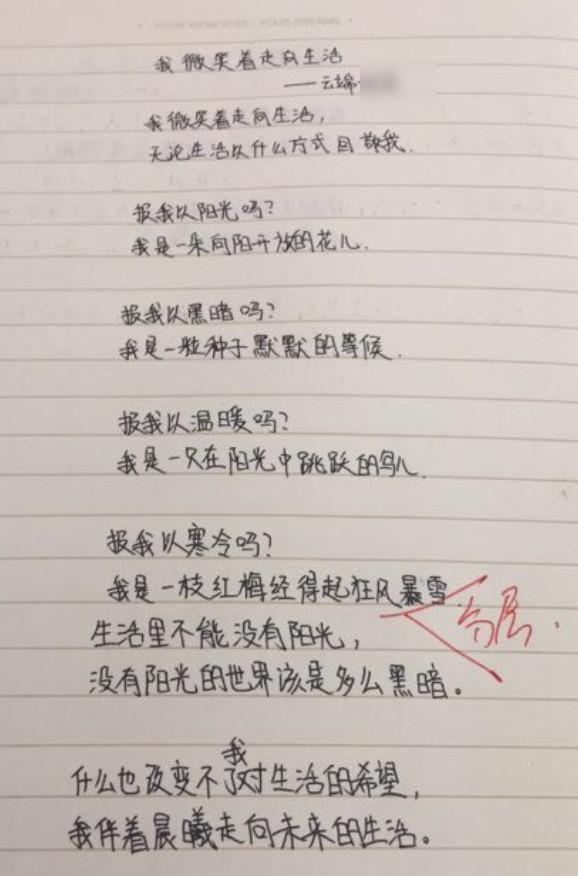 YOUR MEMORIES YOUR DREAMS
我微笑着走向生活
——云绵
我微笑着走向生活，
无论生活以什么方式回敬我.
报我以阳光吗？
我是一朵向阳开放的花儿.
报我以黑暗吗？
我是一粒种子默默的等候.
报我以温暖吗？
我是一只在阳光中跳跃的鸟儿.
报我以寒冷吗？
我是一枝红梅经得起狂风暴雪.
生活里不能没有阳光，
没有阳光的世界该是多么黑暗。
什么也改变不了我对生活的希望，
我伴着晨曦走向未来的生活。